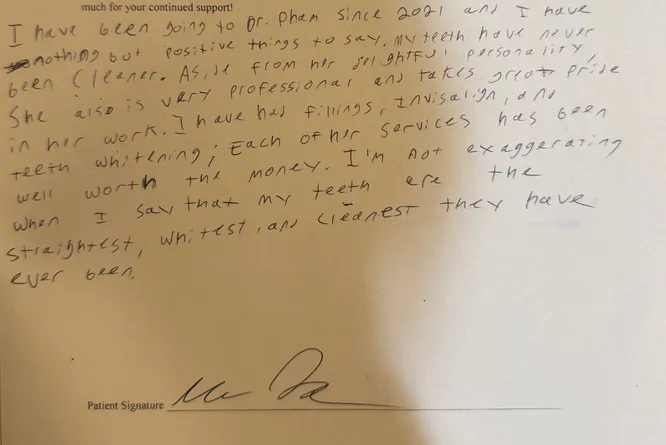 much for your continued support!
I have been going to Dr. Pham since 2021 and I have
nothing but positive things to say. My teeth have never
been cleaner. Aside from her delightful personality,
She also is very professional and takes great pride
in her work. I have had fillings, Invisalign, and
teeth whitening; Each of her services has been
well worth the money. I'm not exaggerating
when I say that my teeth are the
straightest, whitest, and cleanest they have
ever been.
Patient Signature